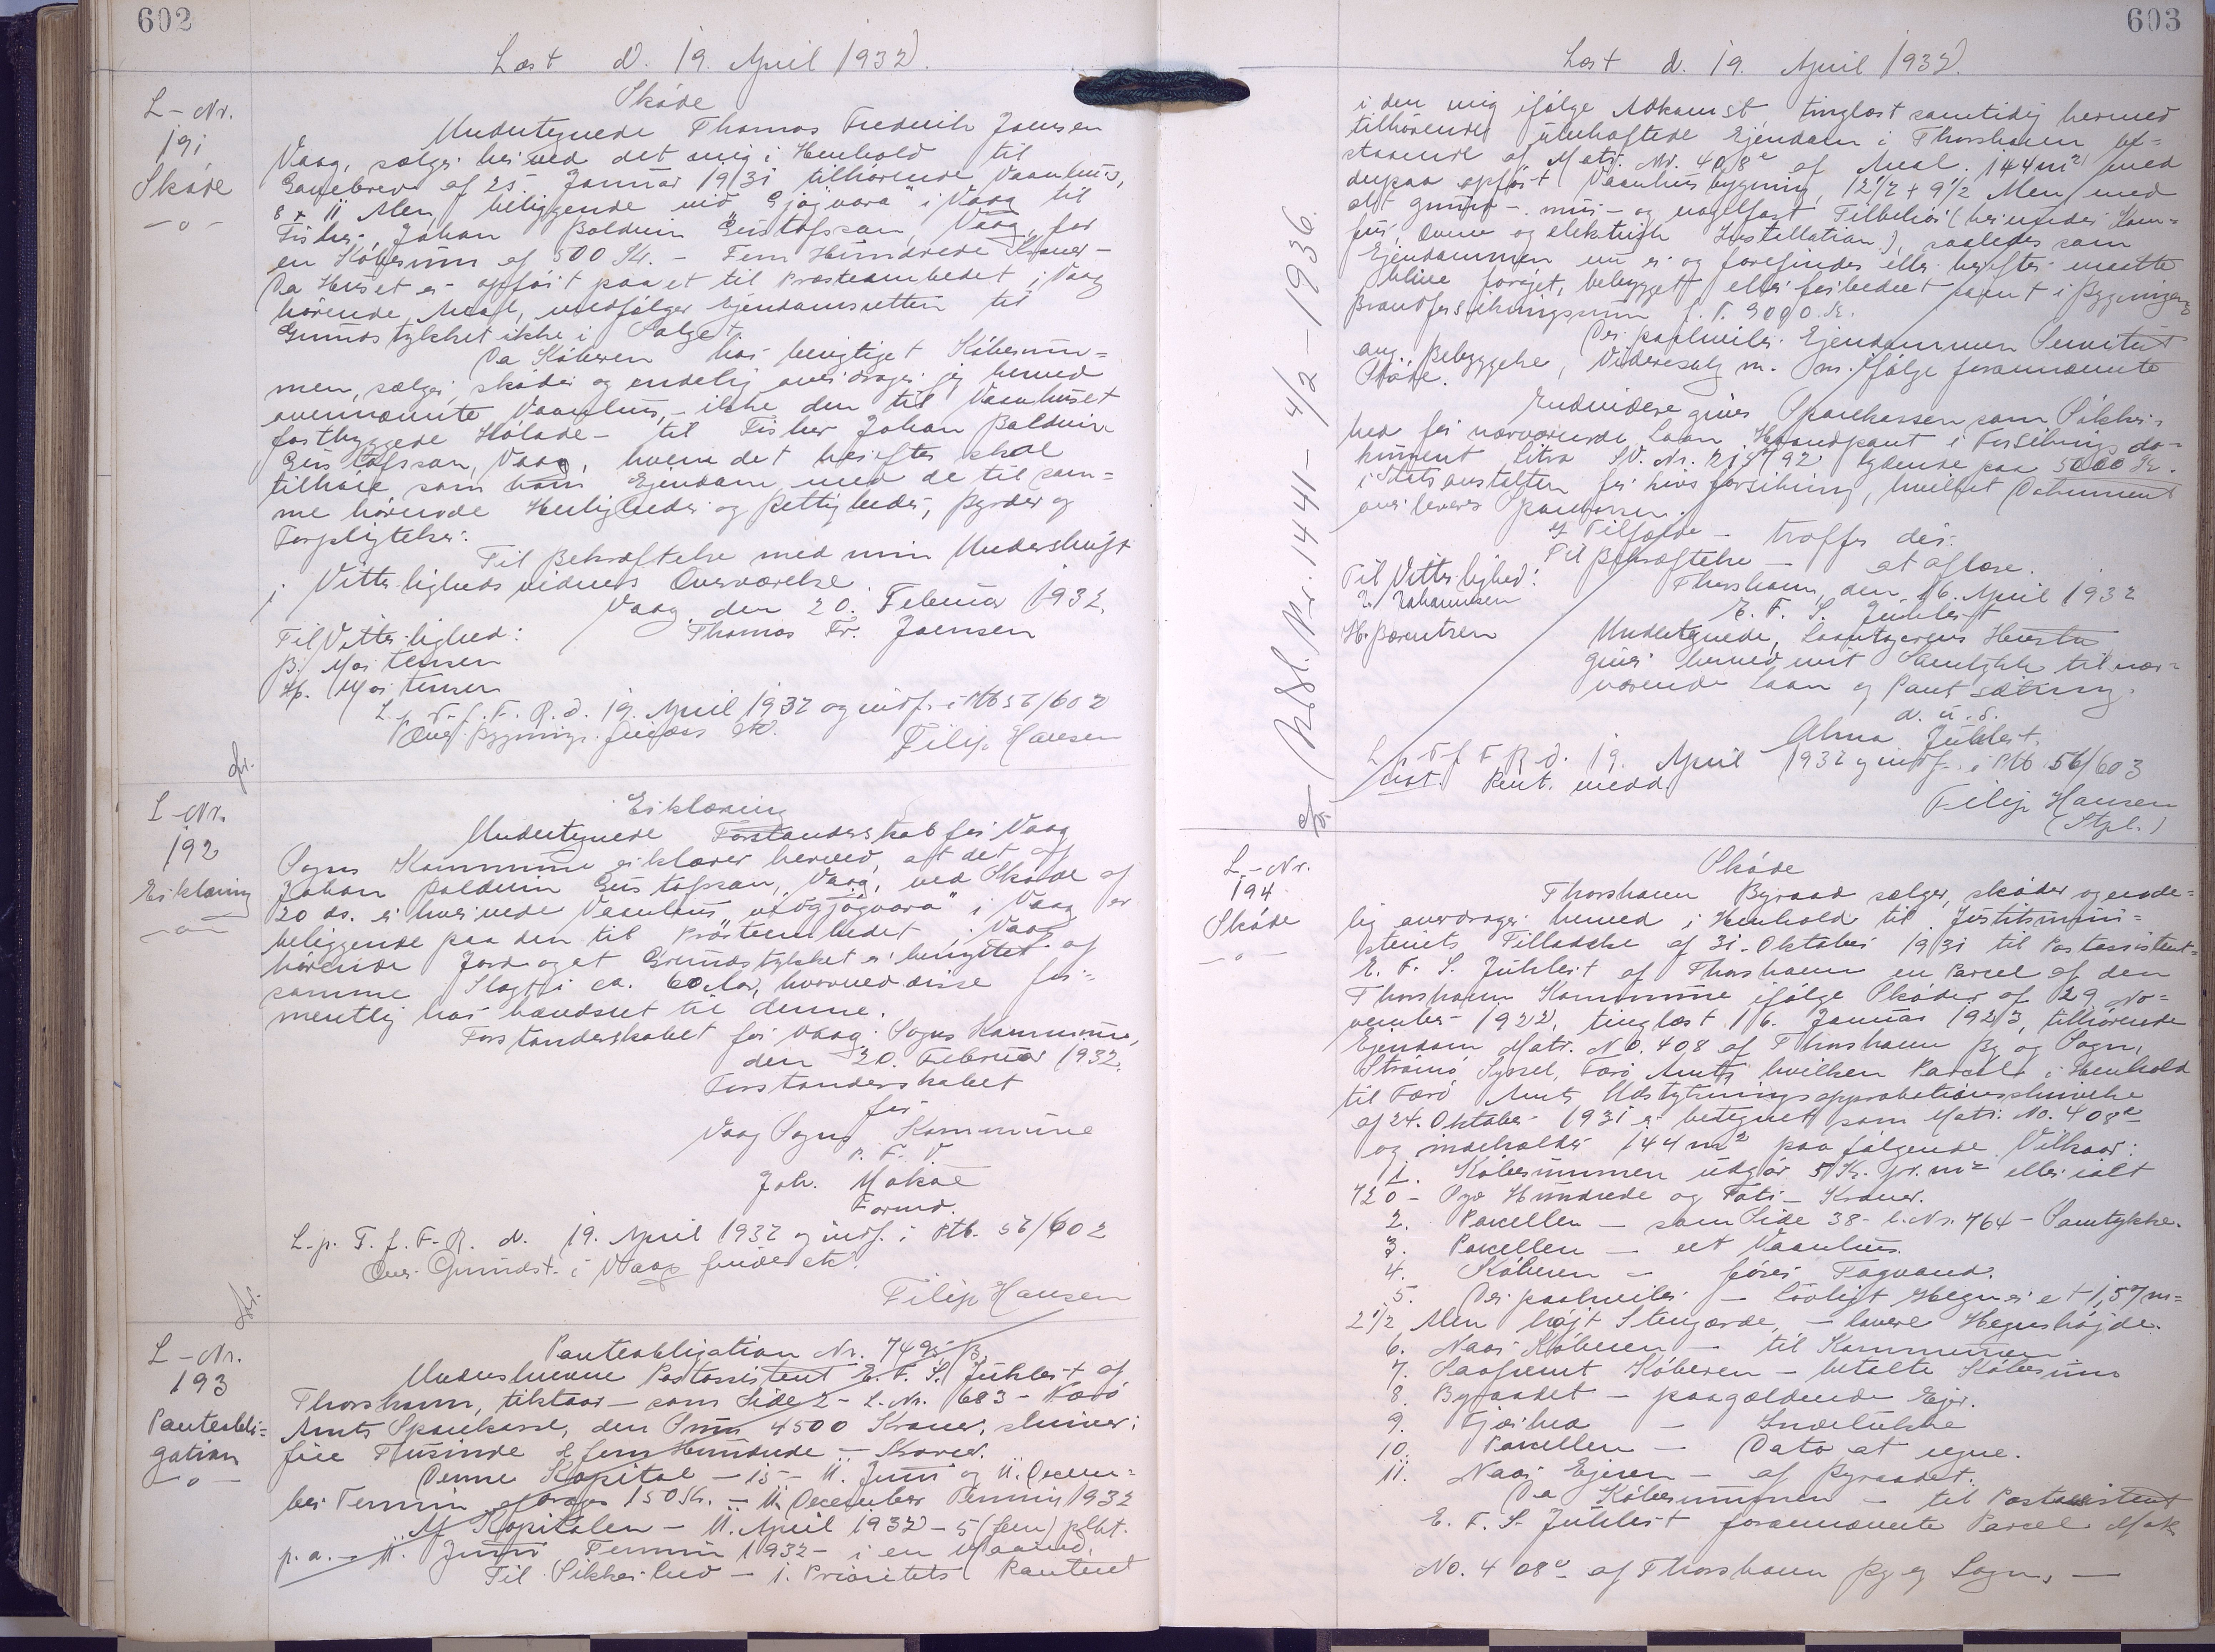 602
Læst d. 19. April 1932.
L-Nr.
191
Skøde
-o-
Skøde
Undertegnede Thomas Frederik Joensen
Vaag, sælger herved det mig i Henhold til
Gavebrev af 25. Januar 1931 tilhørende Vaanhus,
8 x 11 Alen, beliggende við Gjógvará" i Vaag til
Fisker Johan Baldvin Gustafsson, Vaag, for
en Købesum af 500 Kr. - Fem Hundrede Kroner -
Da Huset er opført paa et til Præsteembedet i Vaag
hørende Areal, medfølger Ejendomsretten til
Grundstykket ikke i Salget.
Da Køberen har berigtiget Købesum=
men, sælger, skøder og endelig overdrager jeg herved
ovennævnte Vaanhus, - ikke den til Vaanhuset
fastbyggede Hølade - til Fisker Johan Baldvin
Gustafsson, Vaag, hvem det herefter skal
tilhøre som hans Ejendom med de til sam=
me hørende Herligheder og Rettigheder, Byrder og
Forpligtelser.
Til Bekræftelse med min Underskrift
i Vitterlighedsvidners Overværelse.
Vaag den 20. Februar 1932.
Til Vitterlighed: Thomas Fr. Joensen
B. Mortensen
Hp. Mortensen
L. p. T. f. F. R. d. 19. April 1932 og indf. i Ptb 56/602
Filip Hansen
L-Nr.
192
Erklæring
-o-
Erklæring
Undertegnede Forstanderskab for Vaag
Sogns Kommune erklærer herved, at det af
Johan Baldvin Gustafsson, Vaag, ved Skøde af
20 ds. erhvervede Vaanhus „við Gjógvará" i Vaag er
beliggende paa den til Præsteembedet i Vaag
hørende Jord og at Grundstykket er benyttet af
samme Slags i ca. 60 Aar, hvorved disse for=
mentlig har hævdsret til denne.
Forstanderskabet for Vaag Sogns Kommune,
den 20. Februar 1932.
Forstanderskabet
for
Vaag Sogns Kommune
P. F. V
Joh. Mohr
Formd.
L. p. T. f. F. R. d. 19. April 1932 og indf. i Ptb. 56/602
Filip Hansen
L-Nr.
193
Panteobli=
gation
-o-
Panteobligation Nr. 7495 B.
Underskrevne Postassistent E. F. S. Juhlert af
Thorshavn, tilstaar - som Side 2 - L. Nr. 683 - Færø
Amts Sparekasse, den Sum 4500 Kroner, skriver:
fire Tusinde og fem Hundrede - Kroner.
Denne Kapital - 15 - 11. Juni og 11. Decem=
ber Termin afdrages 150 Kr. - 11. December Termin 1932
Af Kapitalen - 11. April 1932 - 5 (fem) pCt.
p. a. - 11. Juni Termin 1932 - i en Maaned.
Til Sikkerhed - 1. Prioritets Panteret
603
Læst d. 19. April 1932.
i den mig ifølge Adkomst, tinglæst samtidig hermed
tilhørende ubehæftede Ejendom i Thorshavn be=
staaende af Matr. Nr. 408e af Areal 144 m2 med
derpaa opført Vaanhusbygning, 12 1/2 x 9 1/2 Alen med
alt grund- mur- og nagelfast Tilbehør (herunder Kom=
fur, Ovne og elektrisk Installation), saaledes som
Ejendommen nu er og forefindes eller herefter maatte
blive forøget, bebygget eller forbedret samt i Bygningens
Brandforsikringssum f. T. 9000 Kr.
Der paahviler Ejendommen Servitut
ang. Bebyggelse, Videresalg m. m. ifølge forannævnte
Skøde.
Endvidere gives Sparekassen som Sikker=
hed for nærværende Laan Haandpant i Forsikringsdo=
kument Litra LV. Nr. 219792 lydende paa 5000 Kr.
i Statsanstalten for Livsforsikring, hvilket Dokument
overleveres Sparekassen.
I Tilfælde - træffes der.
Til Bekræftelse - at aflæse.
Til Vitterlighed: Thorshavn, den 16. April 1932
Johannesen E. F. S. Juhlert
H. Berentsen Undertegnede, Laantagerens Hustru
giver herved mit Samtykke til nær=
værende Laan og Pantsætning.
d. u. s.
Alma Juhlert.
L. p. T f F R d. 19. April 1932 og indf. i Ptb 56/603
Filip Hansen
(Stpl.)
Aflyst. Nr. 1441 - 4/2 - 1936.
L-Nr.
194
Skøde
-o-
Skøde
Thorshavn Byraad sælger, skøder og ende=
lig overdrager herved i Henhold til Justitsmini=
steriets Tilladelse af 31. Oktober 1931 til Postassistent
E. F. S. Juhlert af Thorshavn en Parcel af den
Thorshavn Kommune ifølge Skøder af 29 No=
vember 1922, tinglæst 16. Januar 1923, tilhørende
Ejendom Matr. No. 408 af Thorshavn By og Sogn,
Strømø Syssel, Færø Amt, hvilken Parcel i Henhold
til Færø Amts Udstykningsapprobationsskrivelse
af 24. Oktober 1931 er betegnet som Matr. No. 408e
og indeholder 144 m2 paa følgende Vilkaar:
1. Købesummen udgør 5 Kr. pr. m2 eller ialt
720 - Syv Hundrede og Toti - Kroner.
2. Parcellen - som Side 38 - L. Nr. 764 - Samtykke.
3. Parcellen - eet Vaanhus.
4. Køberen - fører Tagvand.
5. Der paahviler - lovligt Hegn er et 1,57 m=
2 1/2 Alen højt Stengærde, - lavere Hegnshøjde.
6. Naar Køberen - til Kommunen
7. Saafremt Køberen - betalte Købesum
8. Byraadet - paagældende Ejer.
9. - Indelukke
10. Parcellen - Dato at regne.
11. Naar Ejeren - af Byraadet.
Da Købesummen - til Postassistent
E. F. S. Juhlert forannævnte Parcel Matr.
No. 408e af Thorshavn By og Sogn, -